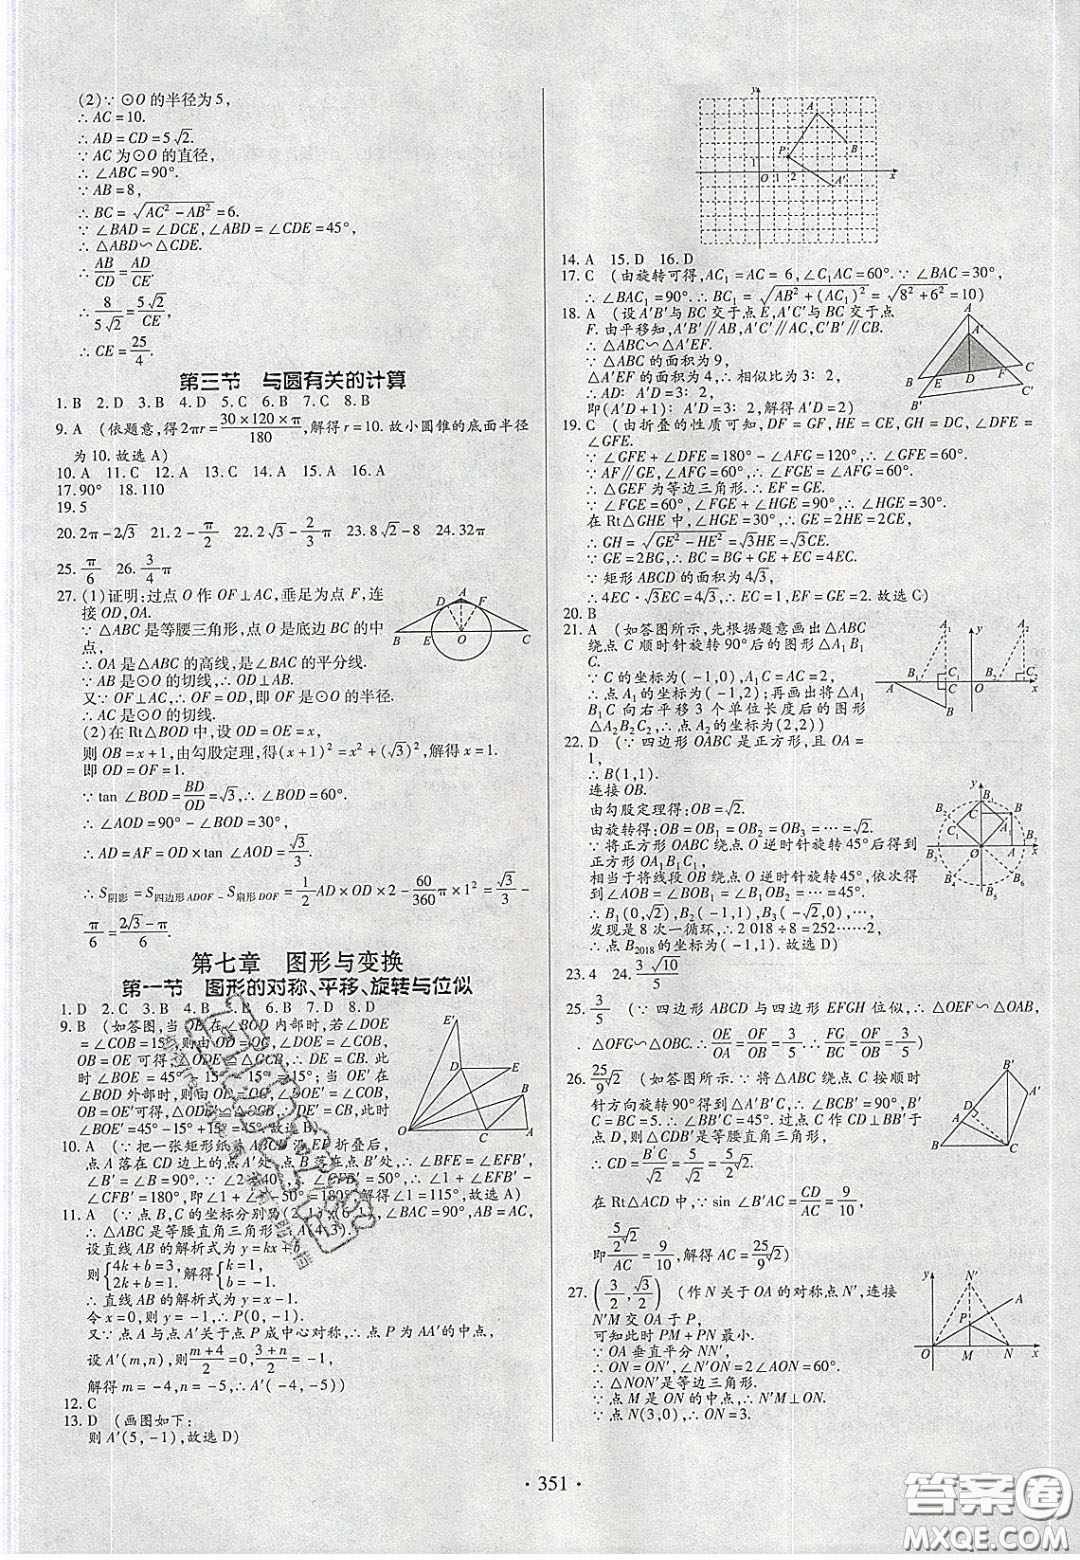 (2)∵⊙O的半径为5,
∴AC=10.
∴AD=CD=5√2.
∵AC为⊙O的直径,
∴∠ABC=90°.
∵AB=8,
∴BC=√(AC²-AB²)=6.
∵∠BAD=∠DCE,∠ABD=∠CDE=45°,
∴△ABD∽△CDE.
∴AB/CD=AD/CE.
∴8/(5√2)=5√2/CE,
∴CE=25/4.
第三节 与圆有关的计算
1.B 2.D 3.B 4.D 5.C 6.B 7.C 8.B
9.A (依题意,得2πr=(30×120×π)/180,解得r=10.故小圆锥的底面半径
为10.故选A)
10.A 11.C 12.A 13.C 14.A 15.A 16.A
17.90° 18.110
19.5
20.2π-2√3 21.2-π/2 22.2√3-2/3π 23.8√2-8 24.32π
25.π/6 26.3/4π
27.(1)证明:过点O作OF⊥AC,垂足为点F,连
接OD,OA.
∵△ABC是等腰三角形,点O是底边BC的中
点,
∴OA是△ABC的高线,是∠BAC的平分线.
∵AB是⊙O的切线,∴OD⊥AB.
又∵OF⊥AC,∴OF=OD,即OF是⊙O的半径.
∴AC是⊙O的切线.
(2)在Rt△BOD中,设OD=OE=x,
则OB=x+1,由勾股定理,得(x+1)²=x²+(√3)²,解得x=1.
即OD=OF=1.
∵tan∠BOD=BD/OD=√3,∴∠BOD=60°.
∴∠AOD=90°-∠BOD=30°,
∴AD=AF=OD×tan∠AOD=√3/3.
∴S阴影=S四边形ADOF-S扇形DOF=1/2AD×OD×2-60/360π×1²=√3/3-
π/6=(2√3-π)/6.
第七章 图形与变换
第一节 图形的对称、平移、旋转与位似
1.D 2.C 3.C 4.D 5.B 6.D 7.B 8.D
9.B (如答图,当OE在∠BOD内部时,若∠DOE
=∠COB=15°,则由OD=OC,∠DOE=∠COB,
OB=OE可得,△ODE≌△OCB,∴DE=CB.此
时,∠BOE=45°-15°-15°=15°;当OE′在
∠BOD外部时,则由OD=OC,∠DOE′=∠COB,
OB=OE′可得,△ODE′≌△OCB,∴DE′=CB.此时,
∠BOE′=45°-15°+15°=45°.故选B)
10.A (∵把一张矩形纸片ABCD沿EF折叠后,
点A落在CD边上的点A′处,点B落在点B′处,∴∠BFE=∠EFB′,
∠B′=∠B=90°.∵∠2=40°,∴∠CFB′=50°,∴∠1+∠EFB′-
∠CFB′=180°,即∠1+∠1-50°=180°,解得∠1=115°,故选A)
11.A (∵点B,C的坐标分别为(2,1),(6,1),∠BAC=90°,AB=AC,
∴△ABC是等腰直角三角形,∴A(4,3).
设直线AB的解析式为y=kx+b,
则{4k+b=3,2k+b=1,解得{k=1,b=-1.
∴直线AB的解析式为y=x-1.
令x=0,则y=-1,∴P(0,-1).
又∵点A与点A′关于点P成中心对称,∴点P为AA′的中点,
设A′(m,n),则(m+4)/2=0,(3+n)/2=-1,
解得m=-4,n=-5,∴A′(-4,-5))
12.C
13.D (画图如下:
则A′(5,-1),故选D)
y A B P 1 O 1 2 A′ x
14.A 15.D 16.D
17.C (由旋转可得,AC₁=AC=6,∠C₁AC=60°.∵∠BAC=30°,
∴∠BAC₁=90°.∴BC₁=√(AB²+(AC₁)²)=√(8²+6²)=10)
18.A (设A′B′与BC交于点E,A′C′与BC交于点
F.由平移知,A′B′∥AB,A′C′∥AC,B′C′∥CB.
∴△ABC∽△A′EF.
∵△ABC的面积为9,
△A′EF的面积为4,∴相似比为3∶2,
∴AD∶A′D=3∶2,
即(A′D+1)∶A′D=3∶2,解得A′D=2)
19.C (由折叠的性质可知,DF=GF,HE=CE,GH=DC,∠DFE=
∠GFE.
∵∠GFE+∠DFE=180°-∠AFG=120°,∴∠GFE=60°.
∵AF∥GE,∠AFG=60°,∴∠FGE=∠AFG=60°,
∴△GEF为等边三角形.∴EF=GE.
∵∠FGE=60°,∠FGE+∠HGE=90°,∴∠HGE=30°.
在Rt△GHE中,∠HGE=30°,∴GE=2HE=2CE,
∴GH=√(GE²-HE²)=√3HE=√3CE.
∵GE=2BG,∴BC=BG+GE+EC=4EC.
∵矩形ABCD的面积为4√3,
∴4EC·√3EC=4√3,∴EC=1,EF=GE=2.故选C)
20.B
21.A (如答图所示,先根据题意画出△ABC
绕点C顺时针旋转90°后的图形△A₁B₁
C.
∵C的坐标为(-1,0),A₁C=AC=2,
∴点A₁的坐标为(-1,2);再画出△A₁
B₁C向右平移3个单位长度后的图形
△A₂B₂C₂,∴点A₂的坐标为(2,2))
22.D (∵四边形OABC是正方形,且OA=
1,
∴B(1,1).
连接OB.
由勾股定理得:OB=√2.
由旋转得:OB=OB₁=OB₂=OB₃=…=√2.
∵将正方形OABC绕点O逆时针旋转45°后得到
正方形OA₁B₁C₁,
相当于将线段OB绕点O逆时针旋转45°,依次得
到∠AOB=∠BOB₁=∠B₁OB₂=…=45°.
∴B₁(0,√2),B₂(-1,1),B₃(-√2,0),….
发现是8次一循环,∴2 018÷8=252……2,
∴点B₂₀₁₈的坐标为(-1,1).故选D)
23.4 24.3√10/5
25.3/5 (∵四边形ABCD与四边形EFGH位似,∴△OEF∽△OAB,
△OFG∽△OBC.∴OE/OA=OF/OB=3/5,∴FG/BC=OF/OB=3/5)
26.25/9√2 (如答图所示.∵将△ABC绕点C按顺时
针方向旋转90°得到△A′B′C,∴∠BCB′=90°,B′
C=BC=5.∴∠BB′C=45°.过点C作CD⊥BB′于
点D,则△CDB′是等腰直角三角形,
∴CD=B′C/√2=5/√2=5/2√2.
在Rt△ACD中,∵sin∠B′AC=CD/AC=9/10,
即(5/2√2)/AC=9/10,解得AC=25/9√2)
27.(3/2,√3/2) (作N关于OA的对称点N′,连接
N′M交OA于P,
可知此时PM+PN最小.
∵OA垂直平分NN′,
∴ON=ON′,∠N′ON=2∠AON=60°.
∴△NON′是等边三角形.
∵点M是ON的中点,∴N′M⊥ON.
∵点N(3,0),∴ON=3.
·351·
答案圈
MXQE.COM